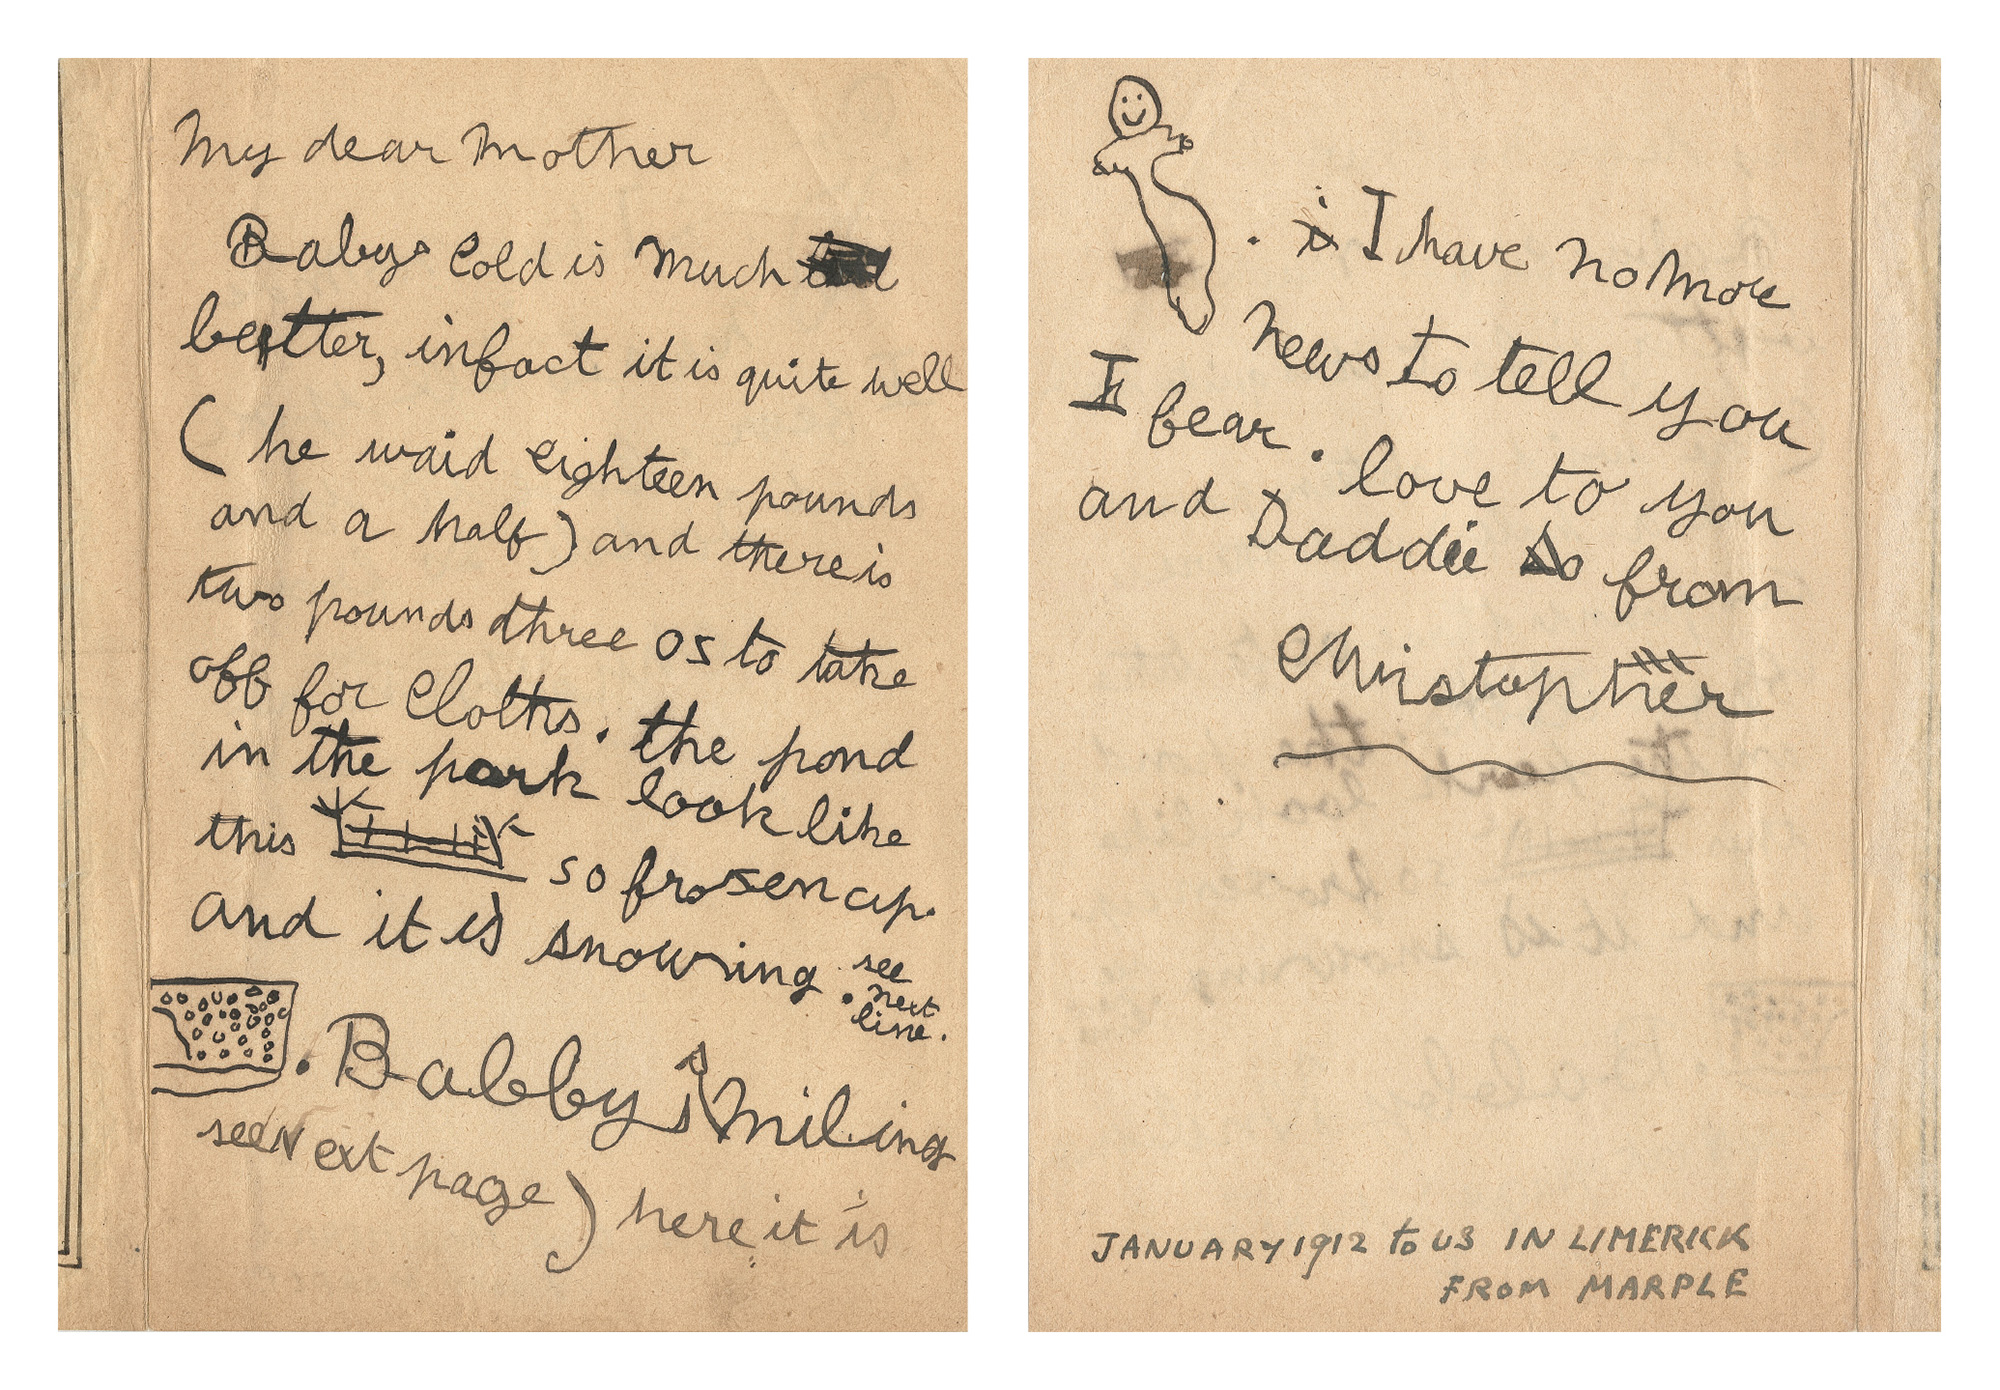 My dear Mother
Babys Cold is Much
better, infact it is quite well
( he waid eighteen pounds
and a half) and there is
two pounds three os to take
off for Cloths. the pond
in the park look like
this so frosen up.
and it is snowing. see
next
line.
. Babby smiling
see Next page) here it is
. I have no More
news to tell you
I fear. love to you
and Daddie from
Christopher
JANUARY 1912 to US IN LIMERICK
FROM MARPLE